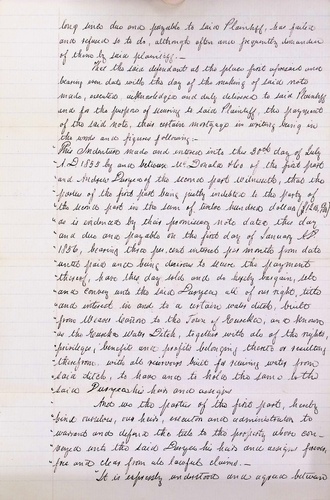 long since due and payable to said Plaintiff, has failed
and refused so to do, although often and frequently demanded
of them by said plaintiff.—
That the said defendants at the place first aforesaid and
bearing even date with the day of the making of said note
made, executed, acknowledged and duly delivered to said Plaintiff
and for the purpose of securing to said Plaintiff, the payment
of the said note, their certain mortgage in writing being in
the words and figures following:—
This Indenture made and entered into this 30th day of July
A.D 1855 by and between Mc Donald &Co of the first part
and Andrew Puryea of the second part Witnesseth, that the
parties of the first part being justly indebted to the party of
the second part in the sum of twelve hundred dollars
as is evidenced by their promissory note dated this day
and due and payable on the first day of January AD
1856, bearing three per cent interest per month from date
until paid and being desirous to secure the payments
thereof, have this day sold and do hereby bargain, sell
and convey unto the said Puryea all of our right, title
and interest in and to a certain water ditch, built
from Weaver to the Town of Eureka, and known
as the Eureka Water Ditch, together with all of the rights,
privileges, benefits and profits belonging thereto or resulting
therefrom, with all reservoirs built for receiving water from
said ditch, to have and to hold the same to the
said Puryea his heirs and assigns
And we the parties of the first part, hereby
bind ourselves, our heirs, executors and administrators to
warrant and defend the title to the property above con-
veyed unto the said Puryea his heirs and assigns forever,
free and clear from all lawful claims.—
It is expressly understood and agreed between